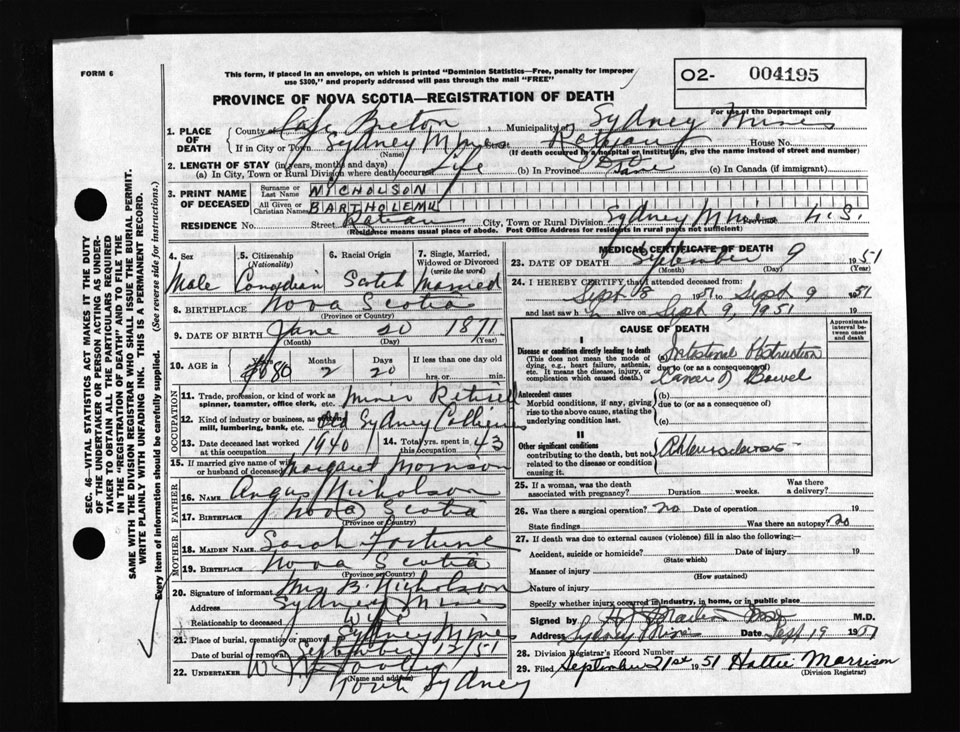 FORM 6
This form, if placed in an envelope, on which is printed "Dominion Statistics—Free, penalty for improper
use $300," and properly addressed will pass through the mail "FREE"
O2- 004195
For use of the Department only
PROVINCE OF NOVA SCOTIA—REGISTRATION OF DEATH
1. PLACE OF DEATH
County of Cape Breton Municipality of Sydney Mines
If in City or Town Sydney Mines Street House No.
(Name) (If death occurred in a hospital or institution, give the name instead of street and number)
2. LENGTH OF STAY (in years, months and days)
(a) In City, Town or Rural Division where death occurred Life (b) In Province (c) In Canada (if immigrant)
3. PRINT NAME OF DECEASED
Surname or Last Name NICHOLSON
All Given or Christian Names BARTHOLEMU
RESIDENCE No. Street City, Town or Rural Division Sydney Mines Province N.S.
(Residence means usual place of abode. Post Office Address for residents in rural parts not sufficient)
SEC. 46—VITAL STATISTICS ACT MAKES IT THE DUTY
OF THE UNDERTAKER OR PERSON ACTING AS UNDER-
TAKER TO OBTAIN ALL THE PARTICULARS REQUIRED
IN THE "REGISTRATION OF DEATH" AND TO FILE THE
SAME WITH THE DIVISION REGISTRAR WHO SHALL ISSUE THE BURIAL PERMIT.
WRITE PLAINLY WITH UNFADING INK. THIS IS A PERMANENT RECORD.
Every item of information should be carefully supplied. (See reverse side for instructions.)
4. Sex Male
5. Citizenship (Nationality) Canadian
6. Racial Origin Scotch
7. Single, Married, Widowed or Divorced (write the word) Married
8. BIRTHPLACE Nova Scotia
(Province or Country)
9. DATE OF BIRTH June 20 1871
(Month) (Day) (Year)
10. AGE in Years 80 Months 2 Days 20 If less than one day old
hrs. or min.
OCCUPATION
11. Trade, profession, or kind of work as spinner, teamster, office clerk, etc. Miner Retired
12. Kind of industry or business, as mill, lumbering, bank, etc. Old Sydney Collieries
13. Date deceased last worked at this occupation 1940
14. Total yrs. spent in this occupation 43
15. If married give name of wife or husband of deceased Margaret Morrison
FATHER
16. NAME Angus Nicholson
17. BIRTHPLACE Nova Scotia
(Province or Country)
MOTHER
18. MAIDEN NAME Sarah Fortune
19. BIRTHPLACE Nova Scotia
(Province or Country)
20. Signature of informant Mrs B. Nicholson
Address Sydney Mines
Relationship to deceased Wife
21. Place of burial, cremation or removal Sydney Mines
Date of burial or removal September 12/51
22. UNDERTAKER
(Name and address)
North Sydney
MEDICAL CERTIFICATE OF DEATH
23. DATE OF DEATH September 9 1951
(Month) (Day) (Year)
24. I HEREBY CERTIFY that I attended deceased from:
Sept 8 1951 to Sept 9 1951
and last saw h alive on Sept 9, 1951
CAUSE OF DEATH
Approximate interval between onset and death
I
Disease or condition directly leading to death (a) Intestinal Obstruction
(This does not mean the mode of
dying, e.g., heart failure, asthenia,
etc. It means the disease, injury, or
complication which caused death.)
due to (or as a consequence of)
Cancer of Bowel
Antecedent causes
Morbid conditions, if any, giving
rise to the above cause, stating the
underlying condition last.
(b)
due to (or as a consequence of)
(c)
II
Other significant conditions
contributing to the death, but not
related to the disease or condition
causing it.
25. If a woman, was the death associated with pregnancy? Duration weeks. Was there a delivery?
26. Was there a surgical operation? no Date of operation 19
State findings Was there an autopsy? no
27. If death was due to external causes (violence) fill in also the following:—
Accident, suicide or homicide? Date of injury 19
(State which)
Manner of injury
(How sustained)
Nature of injury
Specify whether injury occurred in industry, in home, or in public place
Signed by M.D.
Address Sydney Mines Date Sept. 19 1951
28. Division Registrar's Record Number
29. Filed September 21st 1951 Hattie Morrison
(Division Registrar)